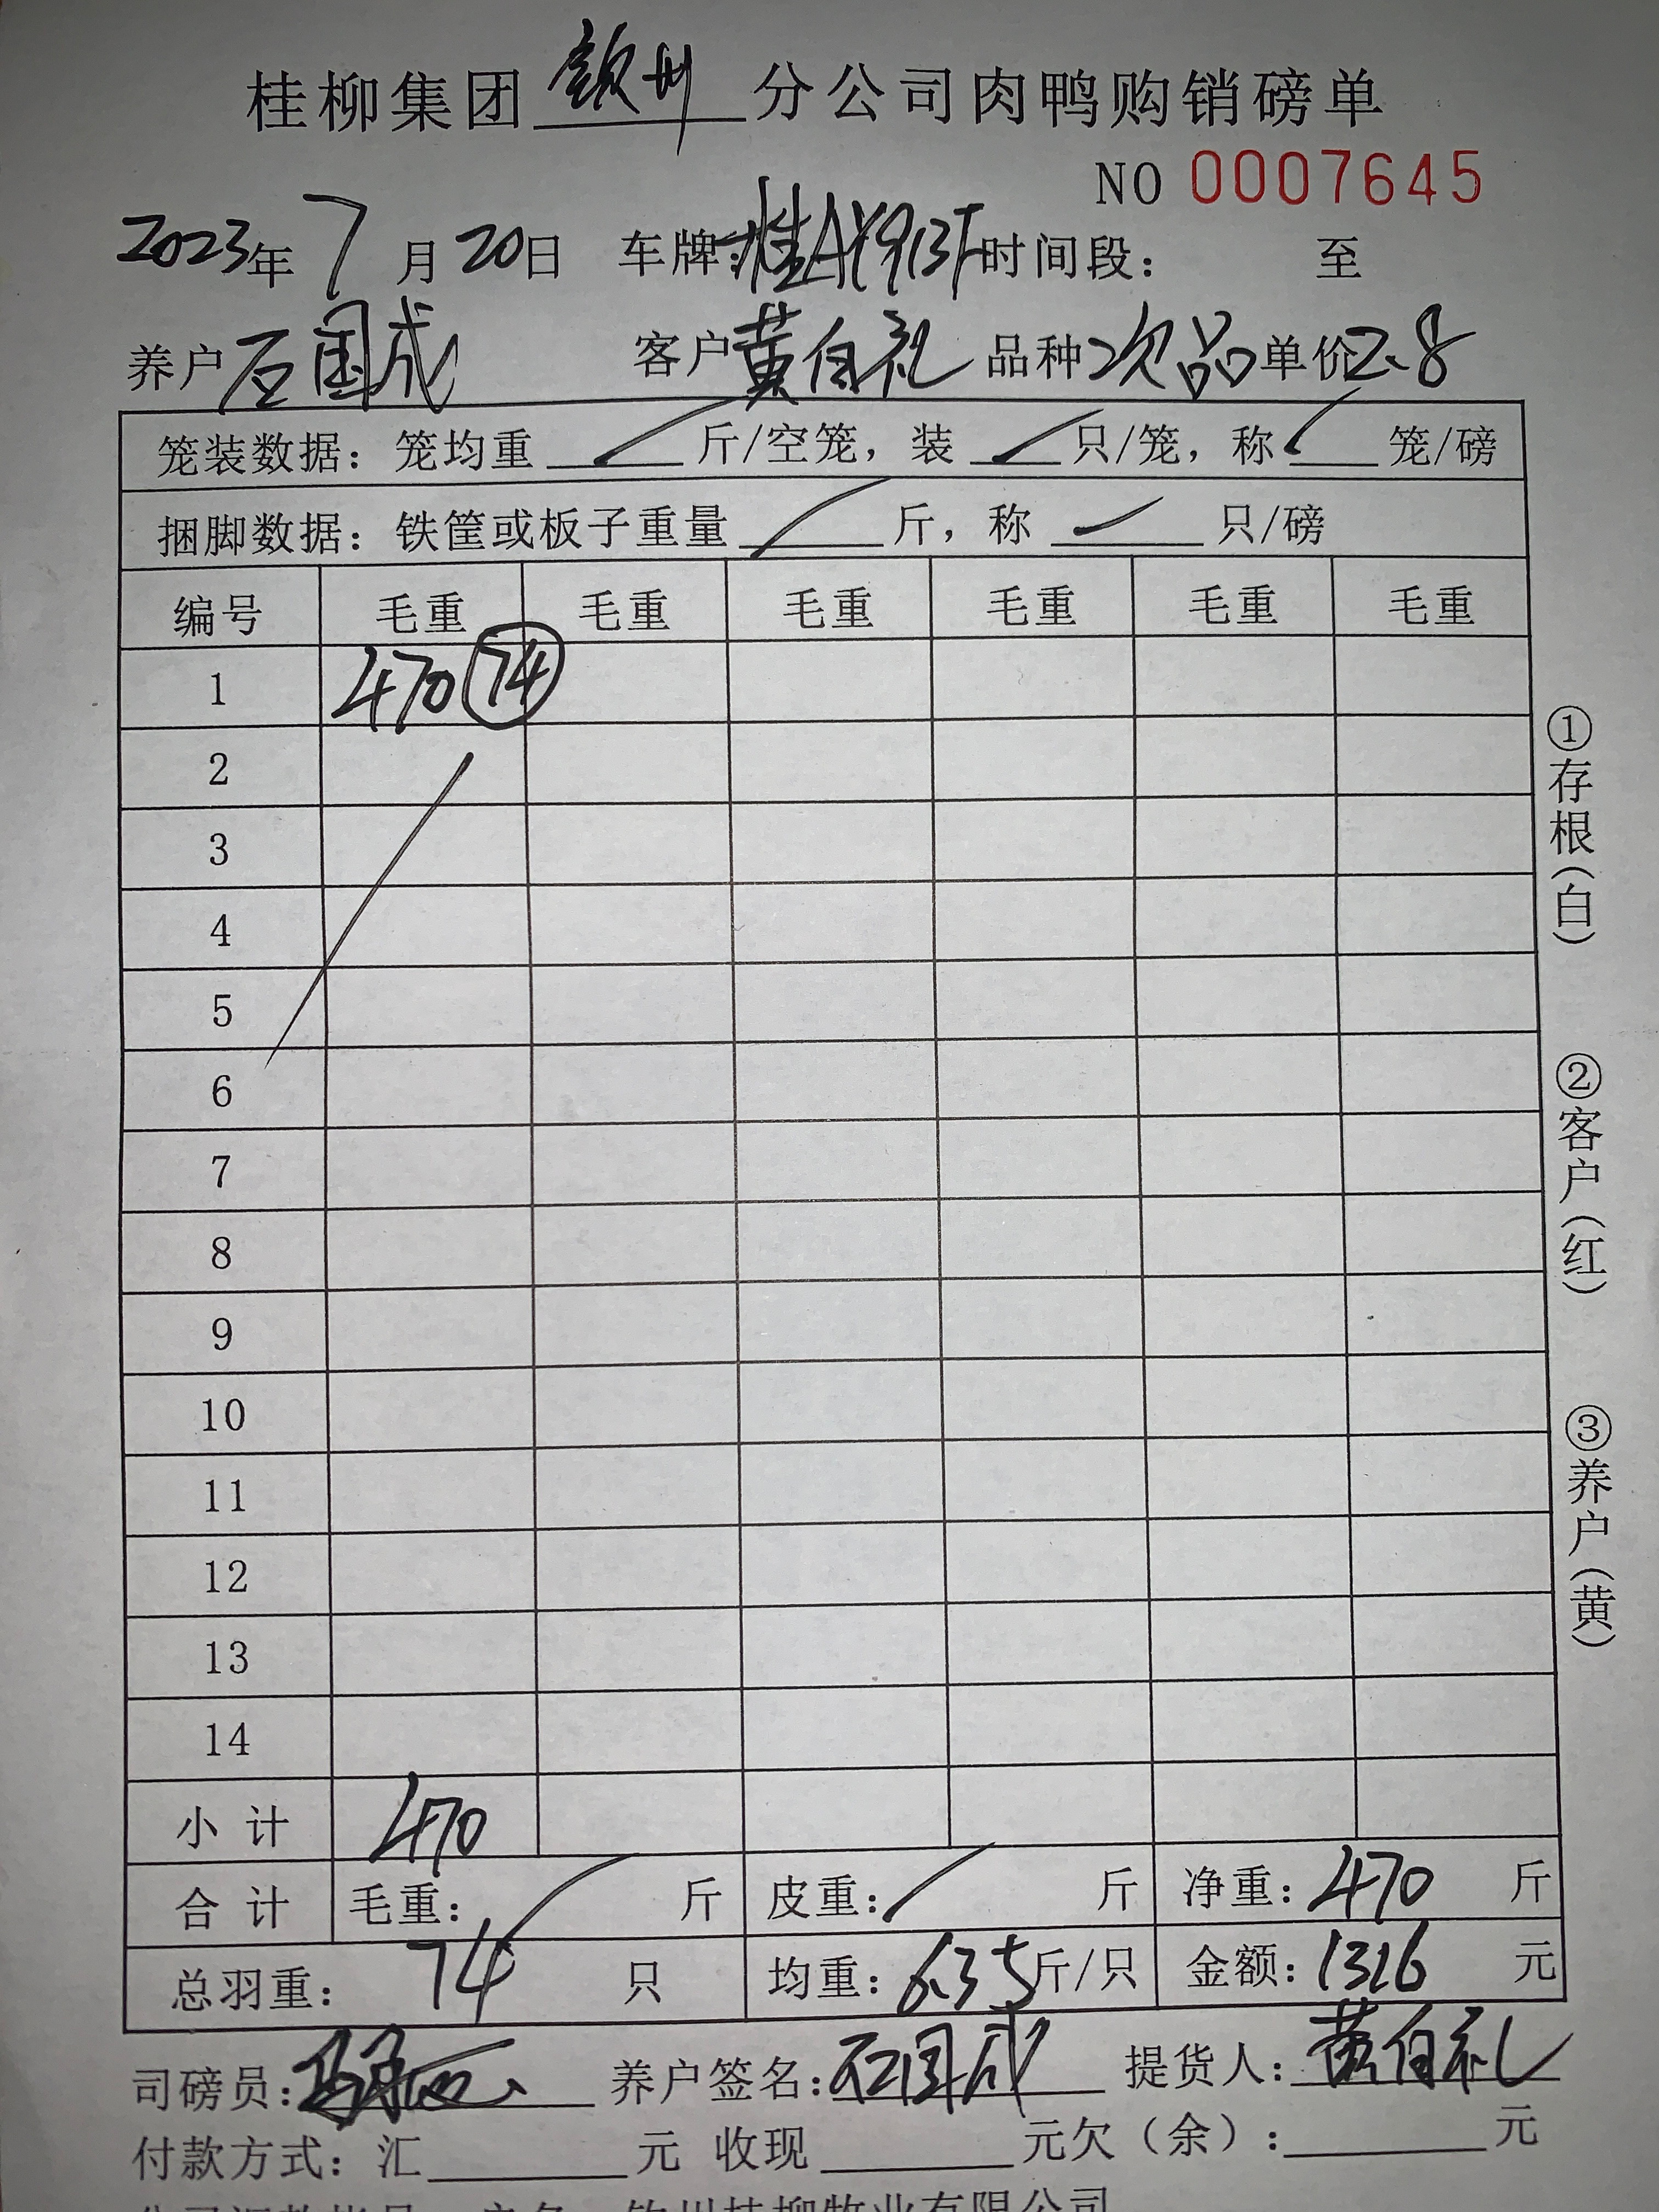 桂柳集团 钦州 分公司肉鸭购销磅单
NO 0007645
2023年 7 月 20日 车牌:桂AY913F 时间段: 至
养户 石国成 客户 黄自礼 品种 次品 单价 2.8
笼装数据:笼均重 斤/空笼,装 只/笼,称 笼/磅
捆脚数据:铁筐或板子重量 斤,称 只/磅
编号 毛重 毛重 毛重 毛重 毛重 毛重
1 470 74
2
3
4
5
6
7
8
9
10
11
12
13
14
小 计 470
合 计 毛重: 斤 皮重: 斤 净重:470 斤
总羽重: 74 只 均重:6.35斤/只 金额:1316 元
司磅员: 养户签名:石国成 提货人:黄自礼
付款方式:汇 元 收现 元欠(余): 元
户名 钦州桂柳牧业有限公司
①存根(白)
②客户(红)
③养户(黄)